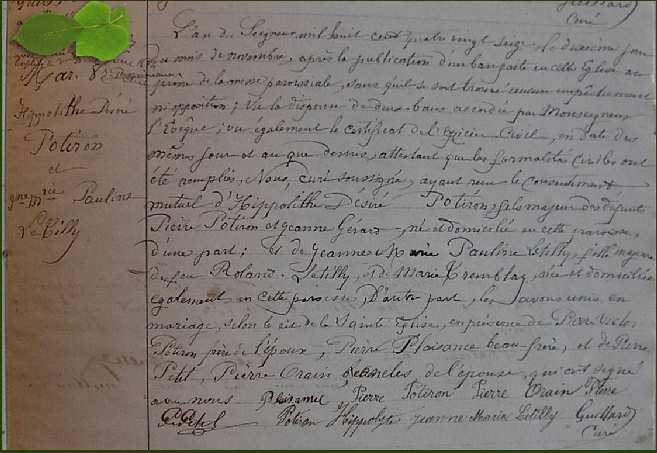 Curé
Mar. 8
Hippolithe Désiré
Potiron
et
Jne Mie Pauline
Le Tilly
L'an du Seigneur mil huit cent quatre vingt seize, le dixième jour
du mois de novembre, après la publication d'un ban faite en cette Eglise au
prône de la messe paroissiale, sans qu'il se soit trouvé aucun empêchement
ni opposition; Vu la dispense de deux bans accordée par Monseigneur
l'Evêque; vu également le certificat de l'officier Civil, en date des
mêmes jour et an que dessus, attestant que les formalités civiles ont
été remplies, Nous, curé soussigné, ayant reçu le consentement
mutuel d'Hippolithe Désiré Potiron, fils majeur des défunts
Pierre Potiron et Jeanne Gérard, né et domicilié en cette paroisse,
d'une part; et de Jeanne Marie Pauline Letilly, fille majeure
de feu Roland Letilly, et de Marie Tremblay, née et domiciliée
également en cette paroisse, D'autre part, les avons unis en
mariage, selon le rit de la Sainte Eglise, en présence de Pierre
Potiron frère de l'époux, Pierre Plaisance beau-frère, et de Pierre
Petit, Pierre Orain de l'épouse, qui ont signé
avec nous Pierre Potiron Pierre Orain
Potiron Hippolyte Jeanne Marie Letilly Guillard
Curé